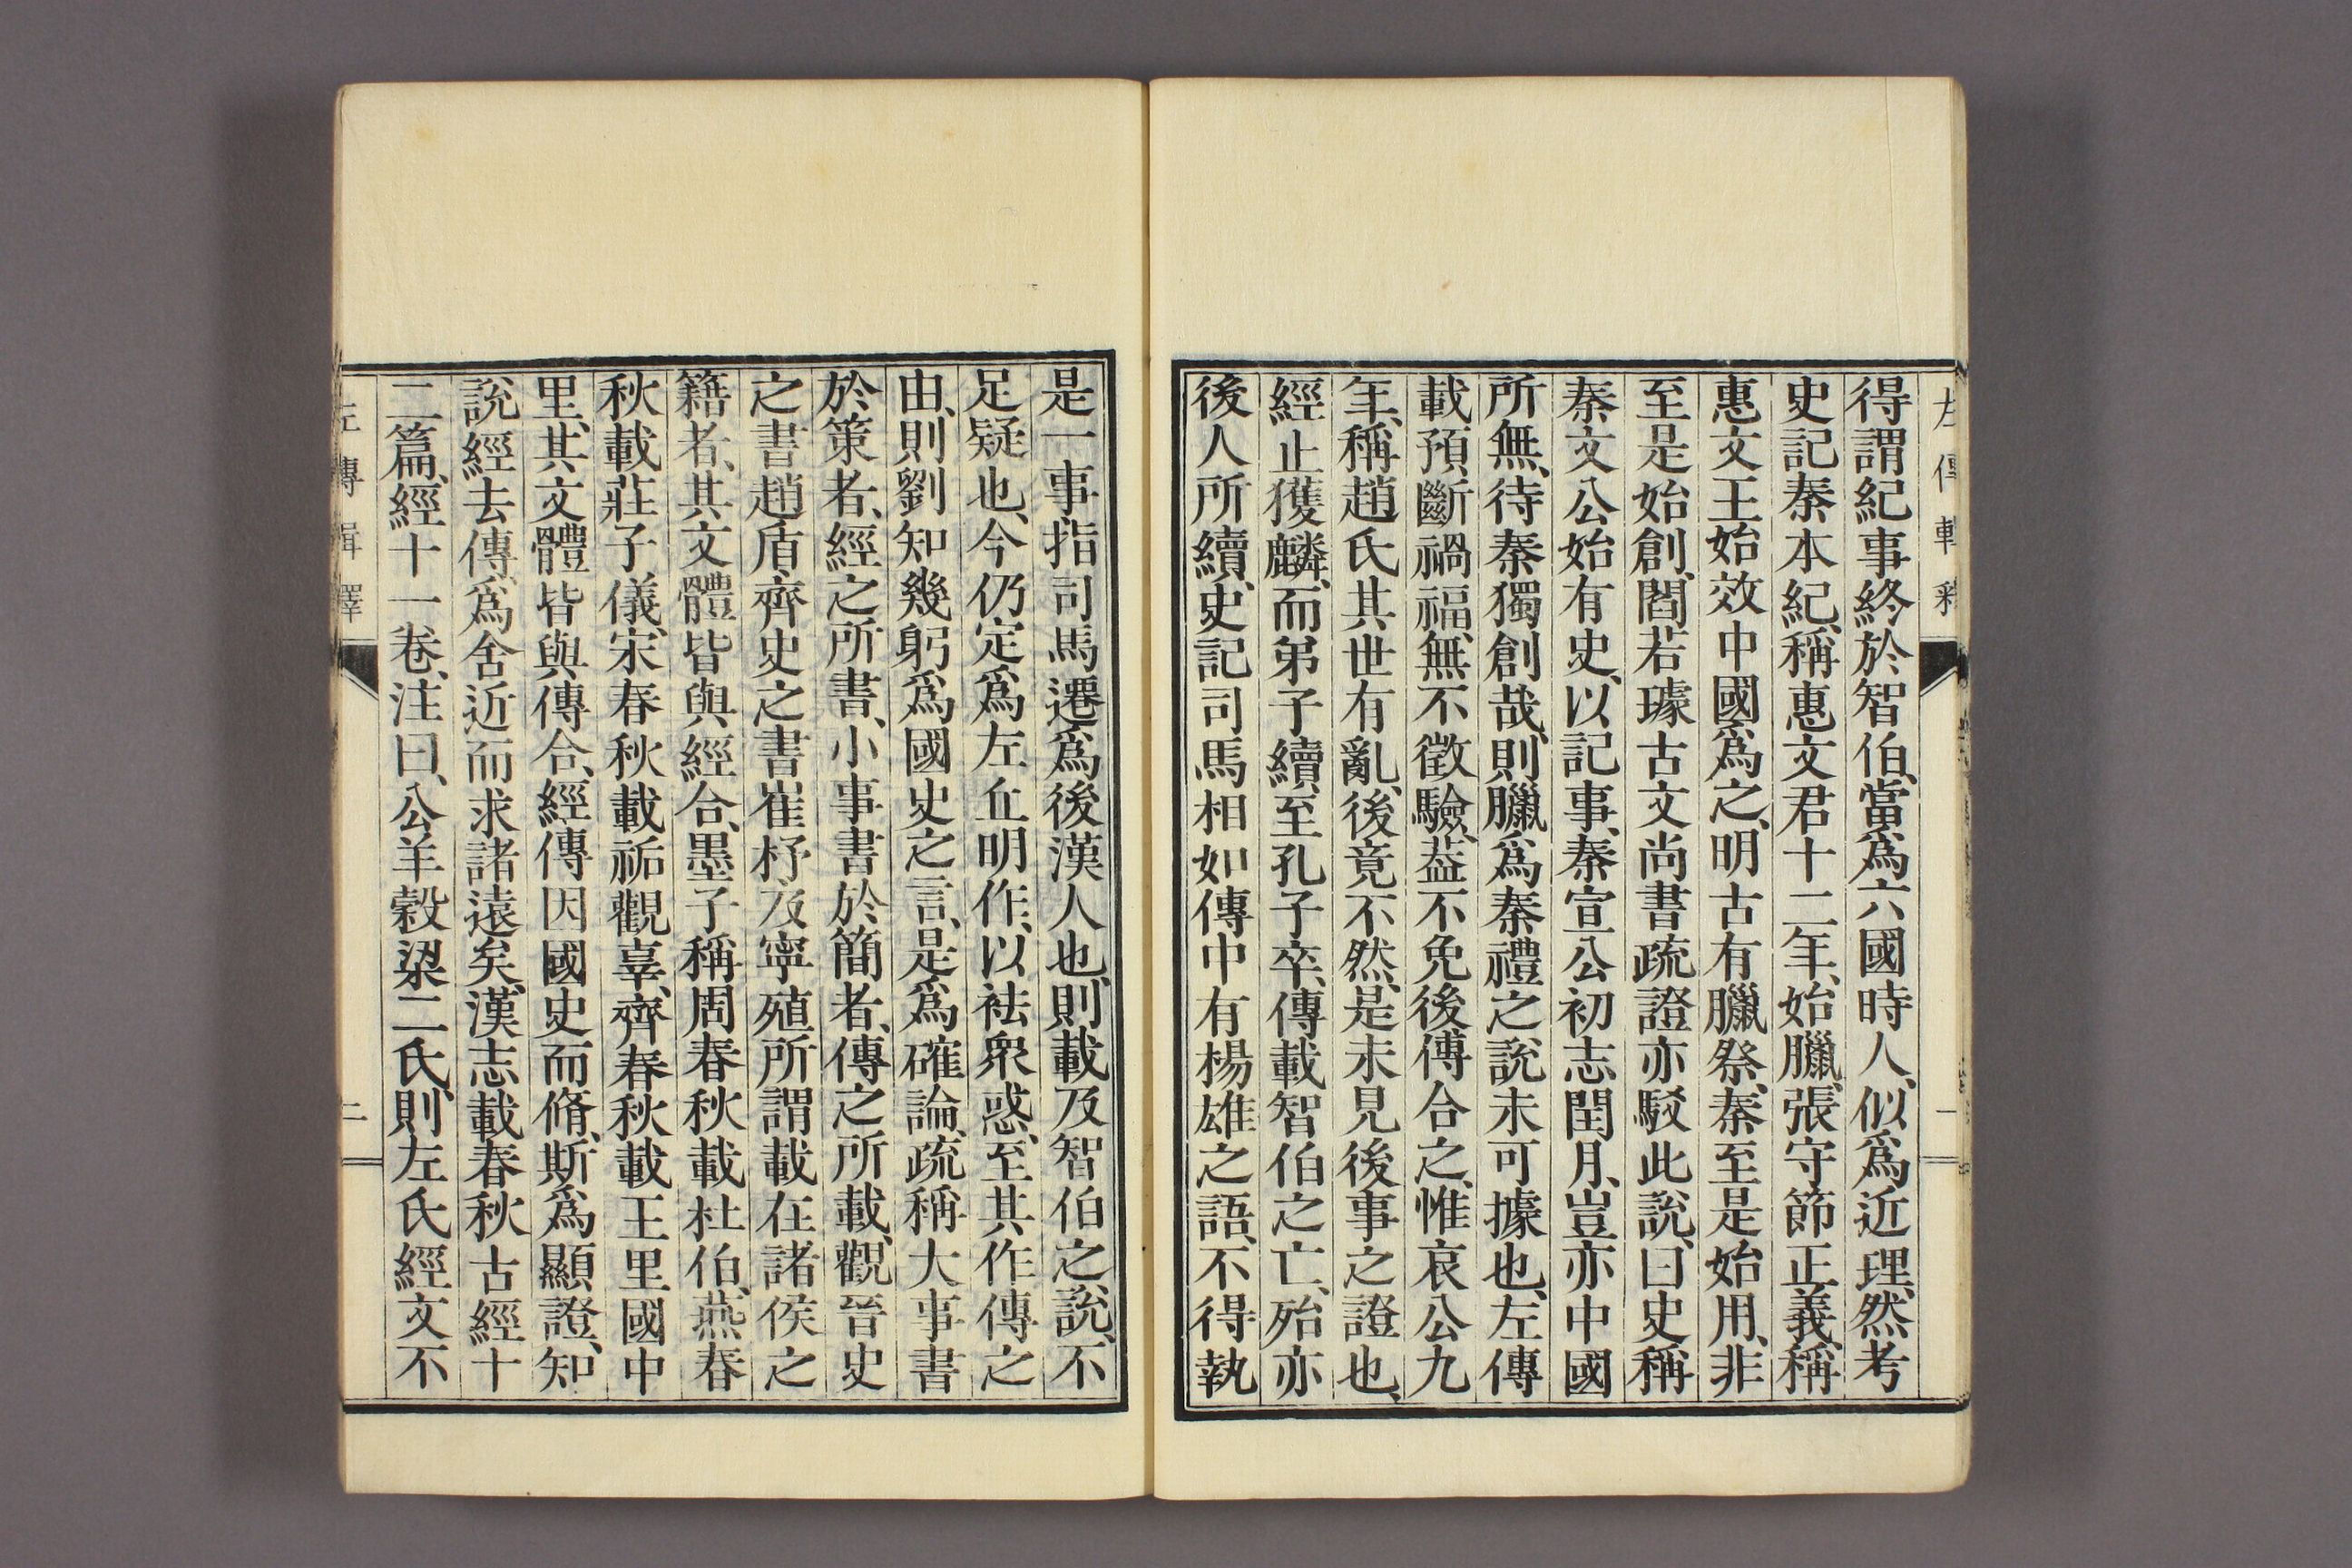 左傳輯釋
一
得謂紀事終於智伯、當爲六國時人、似爲近理、然考
史記秦本紀、稱惠文君十二年、始臘、張守節正義、稱
惠文王始效中國爲之、明古有臘祭、秦至是始用、非
至是始創、閻若璩古文尚書疏證亦駁此說、曰史稱
秦文公始有史、以記事、秦宣公初志閏月、豈亦中國
所無、待秦獨創哉、則臘爲秦禮之說未可據也、左傳
載預斷禍福、無不徵驗、葢不免後傅合之、惟哀公九
年、稱趙氏其世有亂、後竟不然、是未見後事之證也、
經止獲麟、而弟子續、至孔子卒、傳載智伯之亡、殆亦
後人所續、史記司馬相如傳中有楊雄之語、不得執
是一事、指司馬遷爲後漢人也、則載及智伯之說、不
足疑也、今仍定爲左丘明作、以袪衆惑、至其作傳之
由、則劉知幾躬爲國史之言、是爲確論、疏稱大事書
於策者、經之所書、小事書於簡者、傳之所載、觀晉史
之書趙盾、齊史之書崔杼及寧殖所謂載在諸侯之
籍者、其文體皆與經合、墨子稱周春秋載杜伯、燕春
秋載莊子儀、宋春秋載祏觀辜、齊春秋載王里國中
里、其文體皆與傳合、經傳因國史而脩、斯爲顯證、知
說經去傳、爲舍近而求諸遠矣、漢志載春秋古經十
二篇、經十一卷、注曰、公羊穀梁二氏、則左氏經文不
左傳輯釋
二